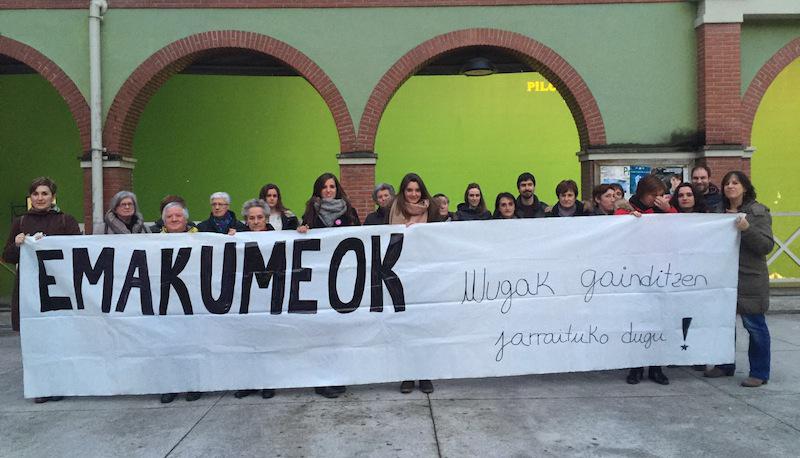 EMAKUMEOK
Mugak gainditzen
jarraituko dugu!